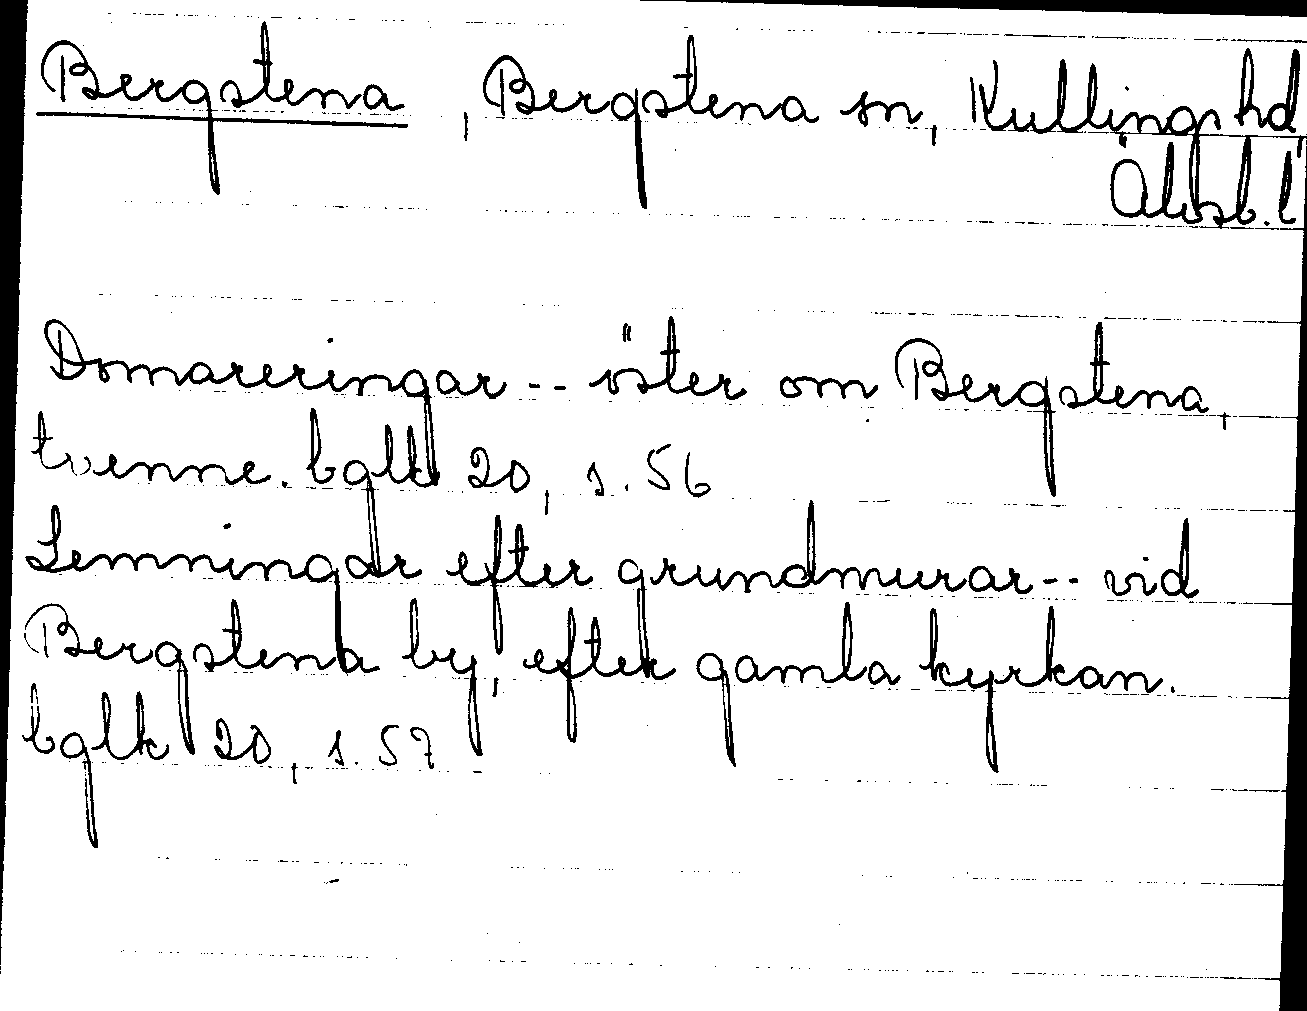 Bergstena, Bergstena sn, Kullings hd,
Älvsb. l
Domareringar -- öster om Bergstena,
tvenne. bglk 20, s. 56
Lemningar efter grundmurar -- vid
Bergstena by, efter gamla kyrkan.
bglk 20, s. 57